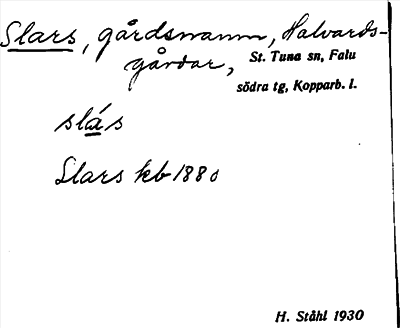 Slars, gårdsnamn, Halvards-
gårdar, St. Tuna sn, Falu
södra tg, Kopparb. l.
slás
Slars kb 1880
H. Ståhl 1930